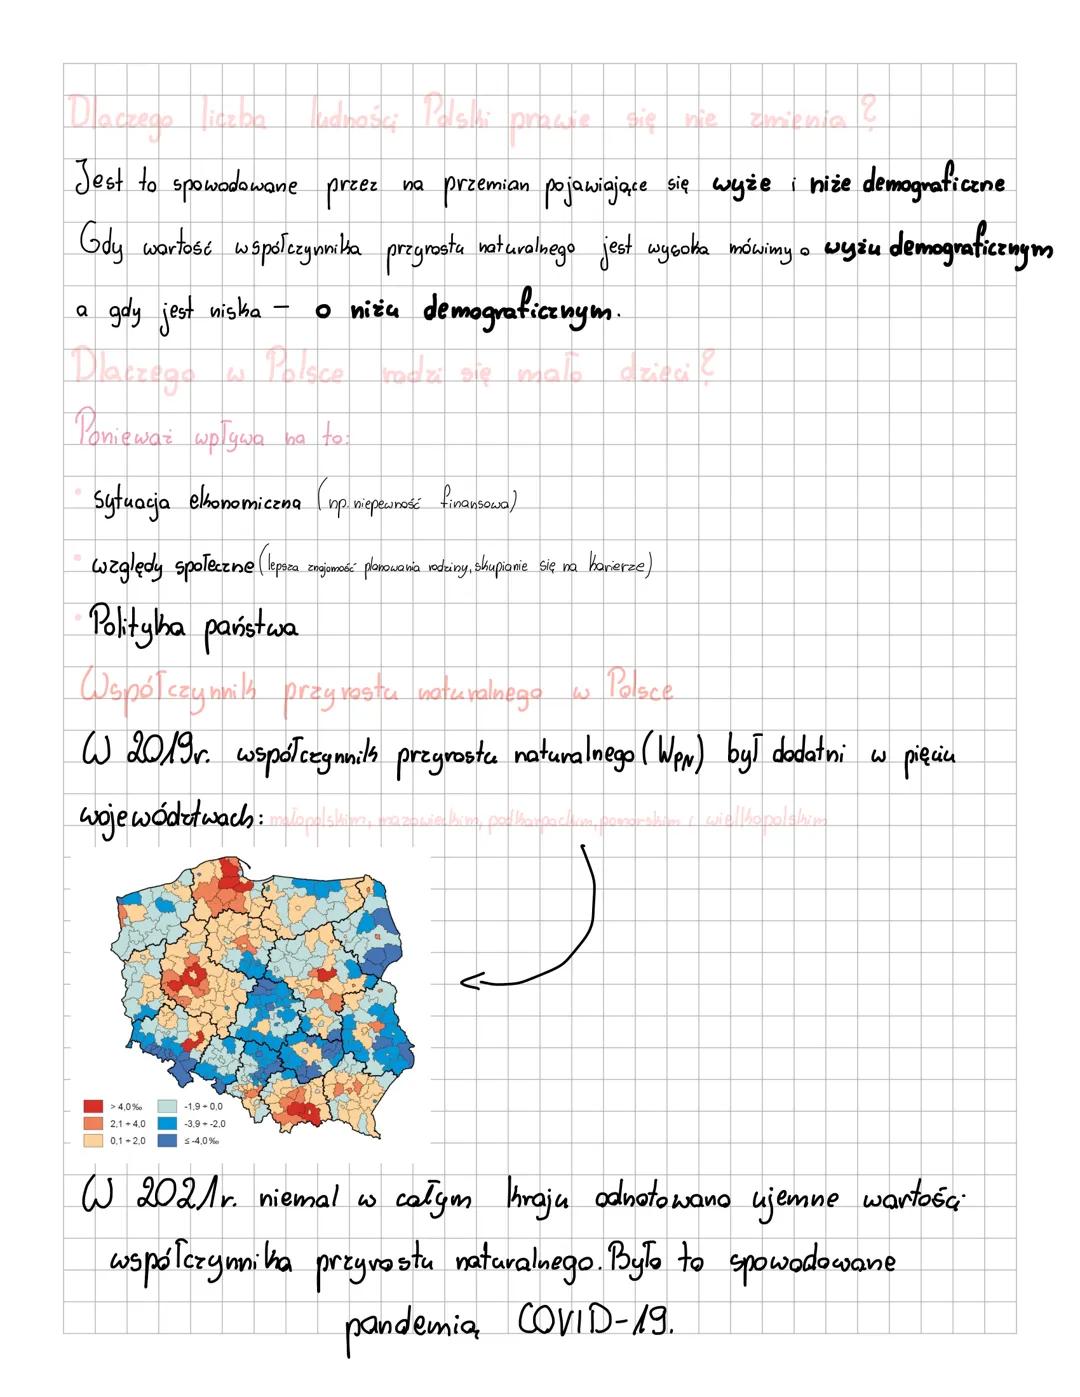 Dlaczego liczba ludności Polski prawie się nie zmienia?
Jest to spowodowane przez na przemian pojawiające się wyże i niże demograficzne
Gdy wartość współczynnika przyrostu naturalnego jest wysoka mówimy o wyżu demograficznym
a gdy jest niska - o niżu demograficznym.
Dlaczego w Polsce rodzi się mało dzieci?
Ponieważ wpływa na to:
• sytuacja ekonomiczna (np. niepewność finansowa)
• względy społeczne (lepsza znajomość planowania rodziny, skupianie się na karierze)
• Polityka państwa
Współczynnik przyrostu naturalnego w Polsce
W 2019r. współczynnik przyrostu naturalnego (WPN) był dodatni w pięciu
województwach: małopolskim, mazowieckim, podkarpackim, pomorskim i wielkopolskim
> 4,0‰ -1,9 ÷ 0,0
2,1 ÷ 4,0 -3,9 ÷ -2,0
0,1 ÷ 2,0 ≤ -4,0‰
W 2021r. niemal w całym kraju odnotowano ujemne wartości
współczynnika przyrostu naturalnego. Było to spowodowane
pandemią COVID-19.